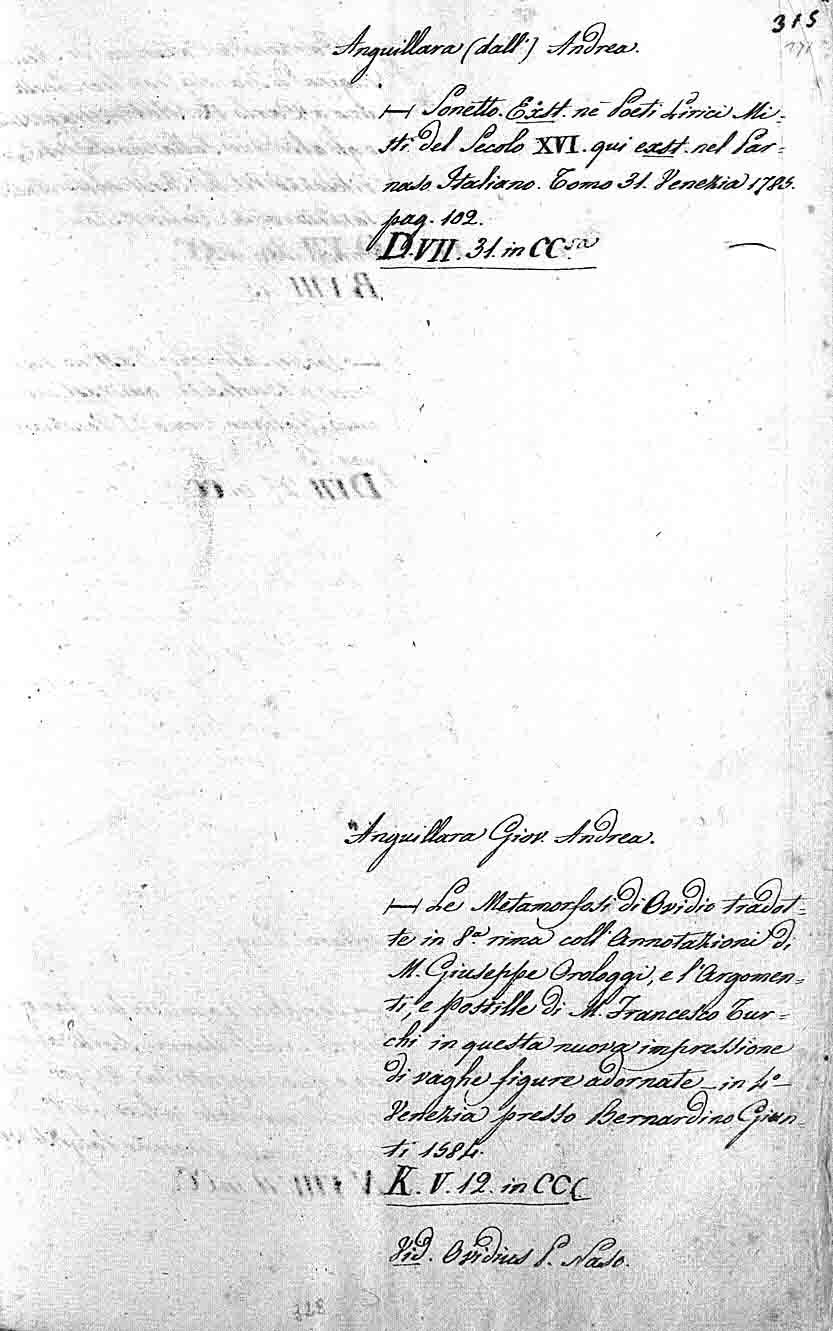 315
Anguillara (dall') Andrea.
— Sonetto. Exst. nè Poeti Lirici Mi-
sti del Secolo XVI. qui exst. nel Par-
naso Italiano. Tomo 31. Venezia 1785.
pag. 102.
D. VII. 31. in CC.
Anguillara Giov. Andrea.
— Le Metamorfosi di Ovidio tradot-
te in 8.a rima coll' Annotazioni di
M. Giuseppe Orologgi, e l'Argomen-
ti, e Postille di M. Francesco Tur-
chi in questa nuova impressione
di vaghe figure adornate in 4.o
Venezia presso Bernardino Giun-
ti 1584.
K. V. 12. in CC
Vid. Ovidius P. Naso.